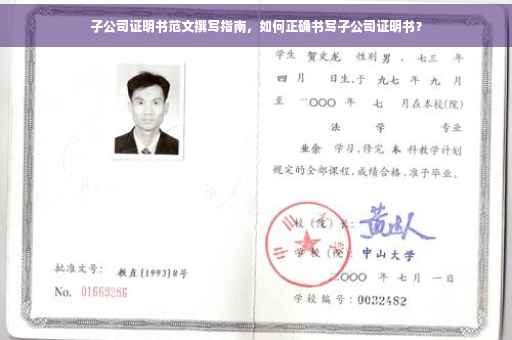 子公司证明书范文撰写指南，如何正确书写子公司证明书？
学生 贺文龙 性别 男 、七三 年
四 月 日生，于 九七 年 九 月
至 二〇〇〇 年 七 月在本校(院)
法 学 专业
业余 学习，修完 本 科教学计划
规定的全部课程，成绩合格，准予毕业。
校（院）长：
学校（院）：中山大学
二〇〇〇 年 七 月 一 日
学校编号：0032482
批准文号：教直[1993]8号
No. 01669286
中山大